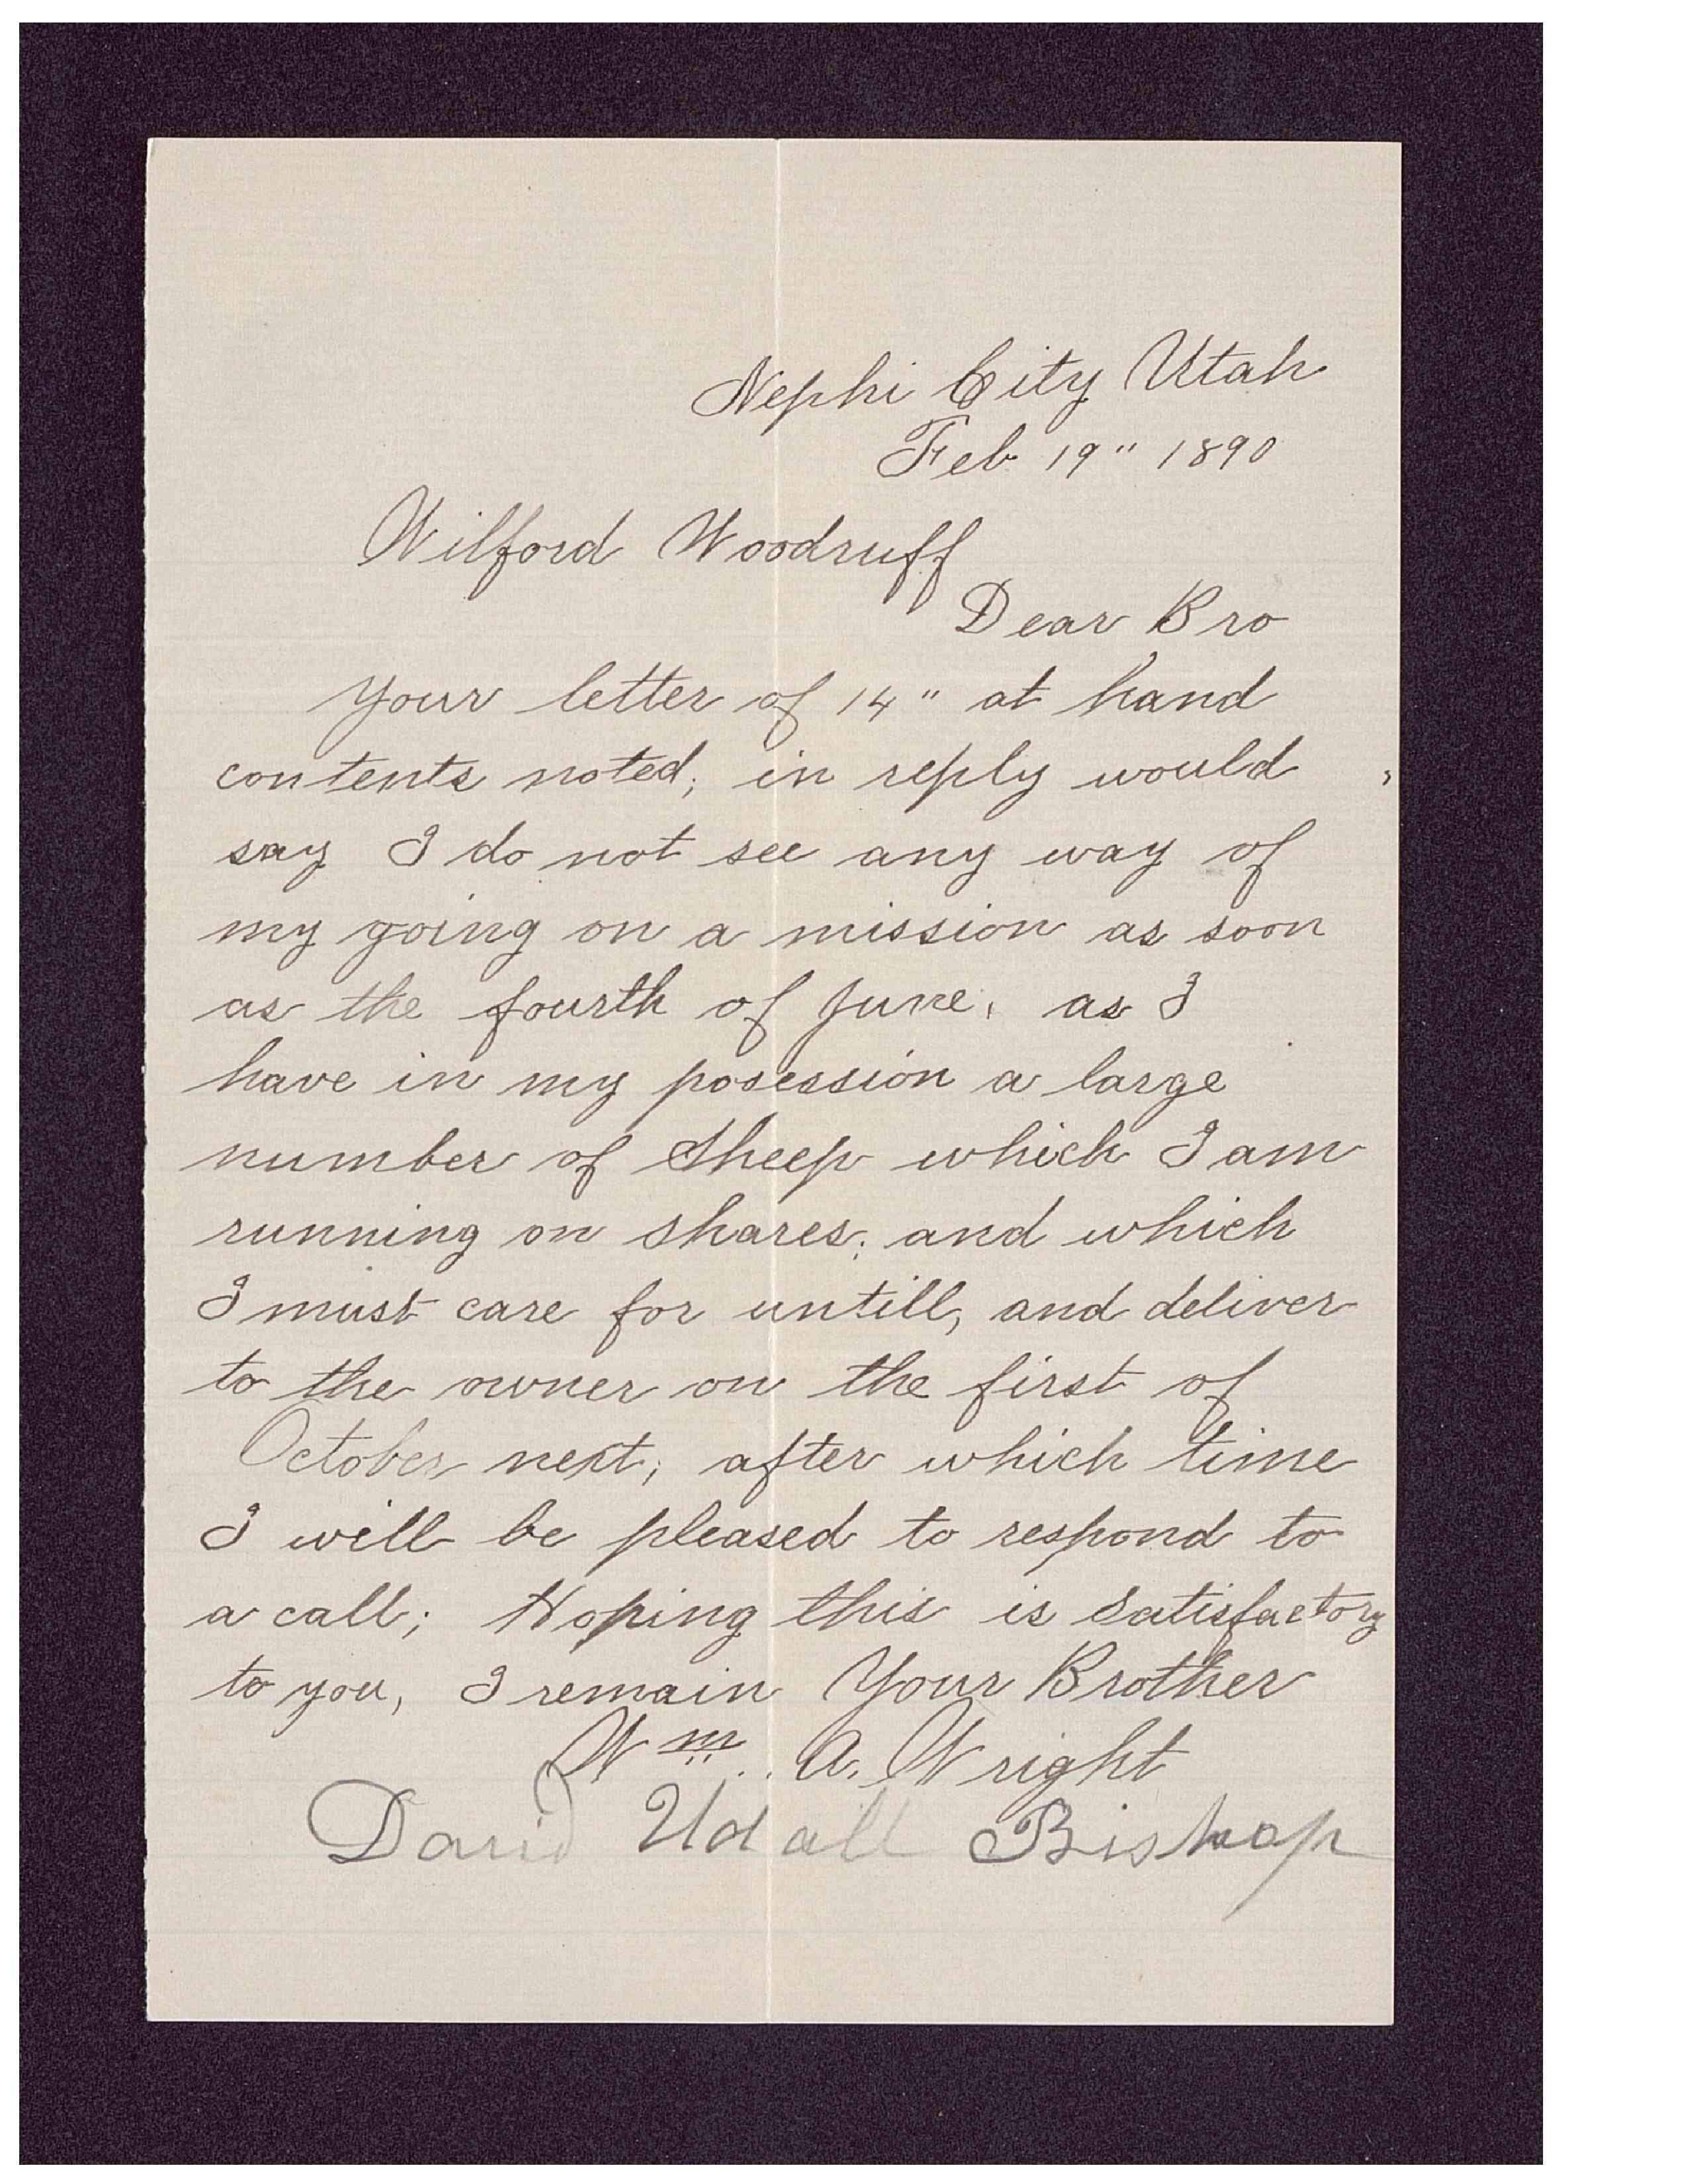 Nephi City Utah
Feb 19" 1890
Wilford Woodruff
Dear Bro
Your letter of 14" at hand
contents noted; in reply would
say I do not see any way of
my going on a mission as soon
as the fourth of June, as I
have in my posession a large
number of Sheep which I am
running on shares; and which
I must care for untill, and deliver
to the owner on the first of
October next; after which time
I will be pleased to respond to
a call; Hoping this is satisfactory
to you, I remain Your Brother
Wm. A. Wright
David Udall Bishop